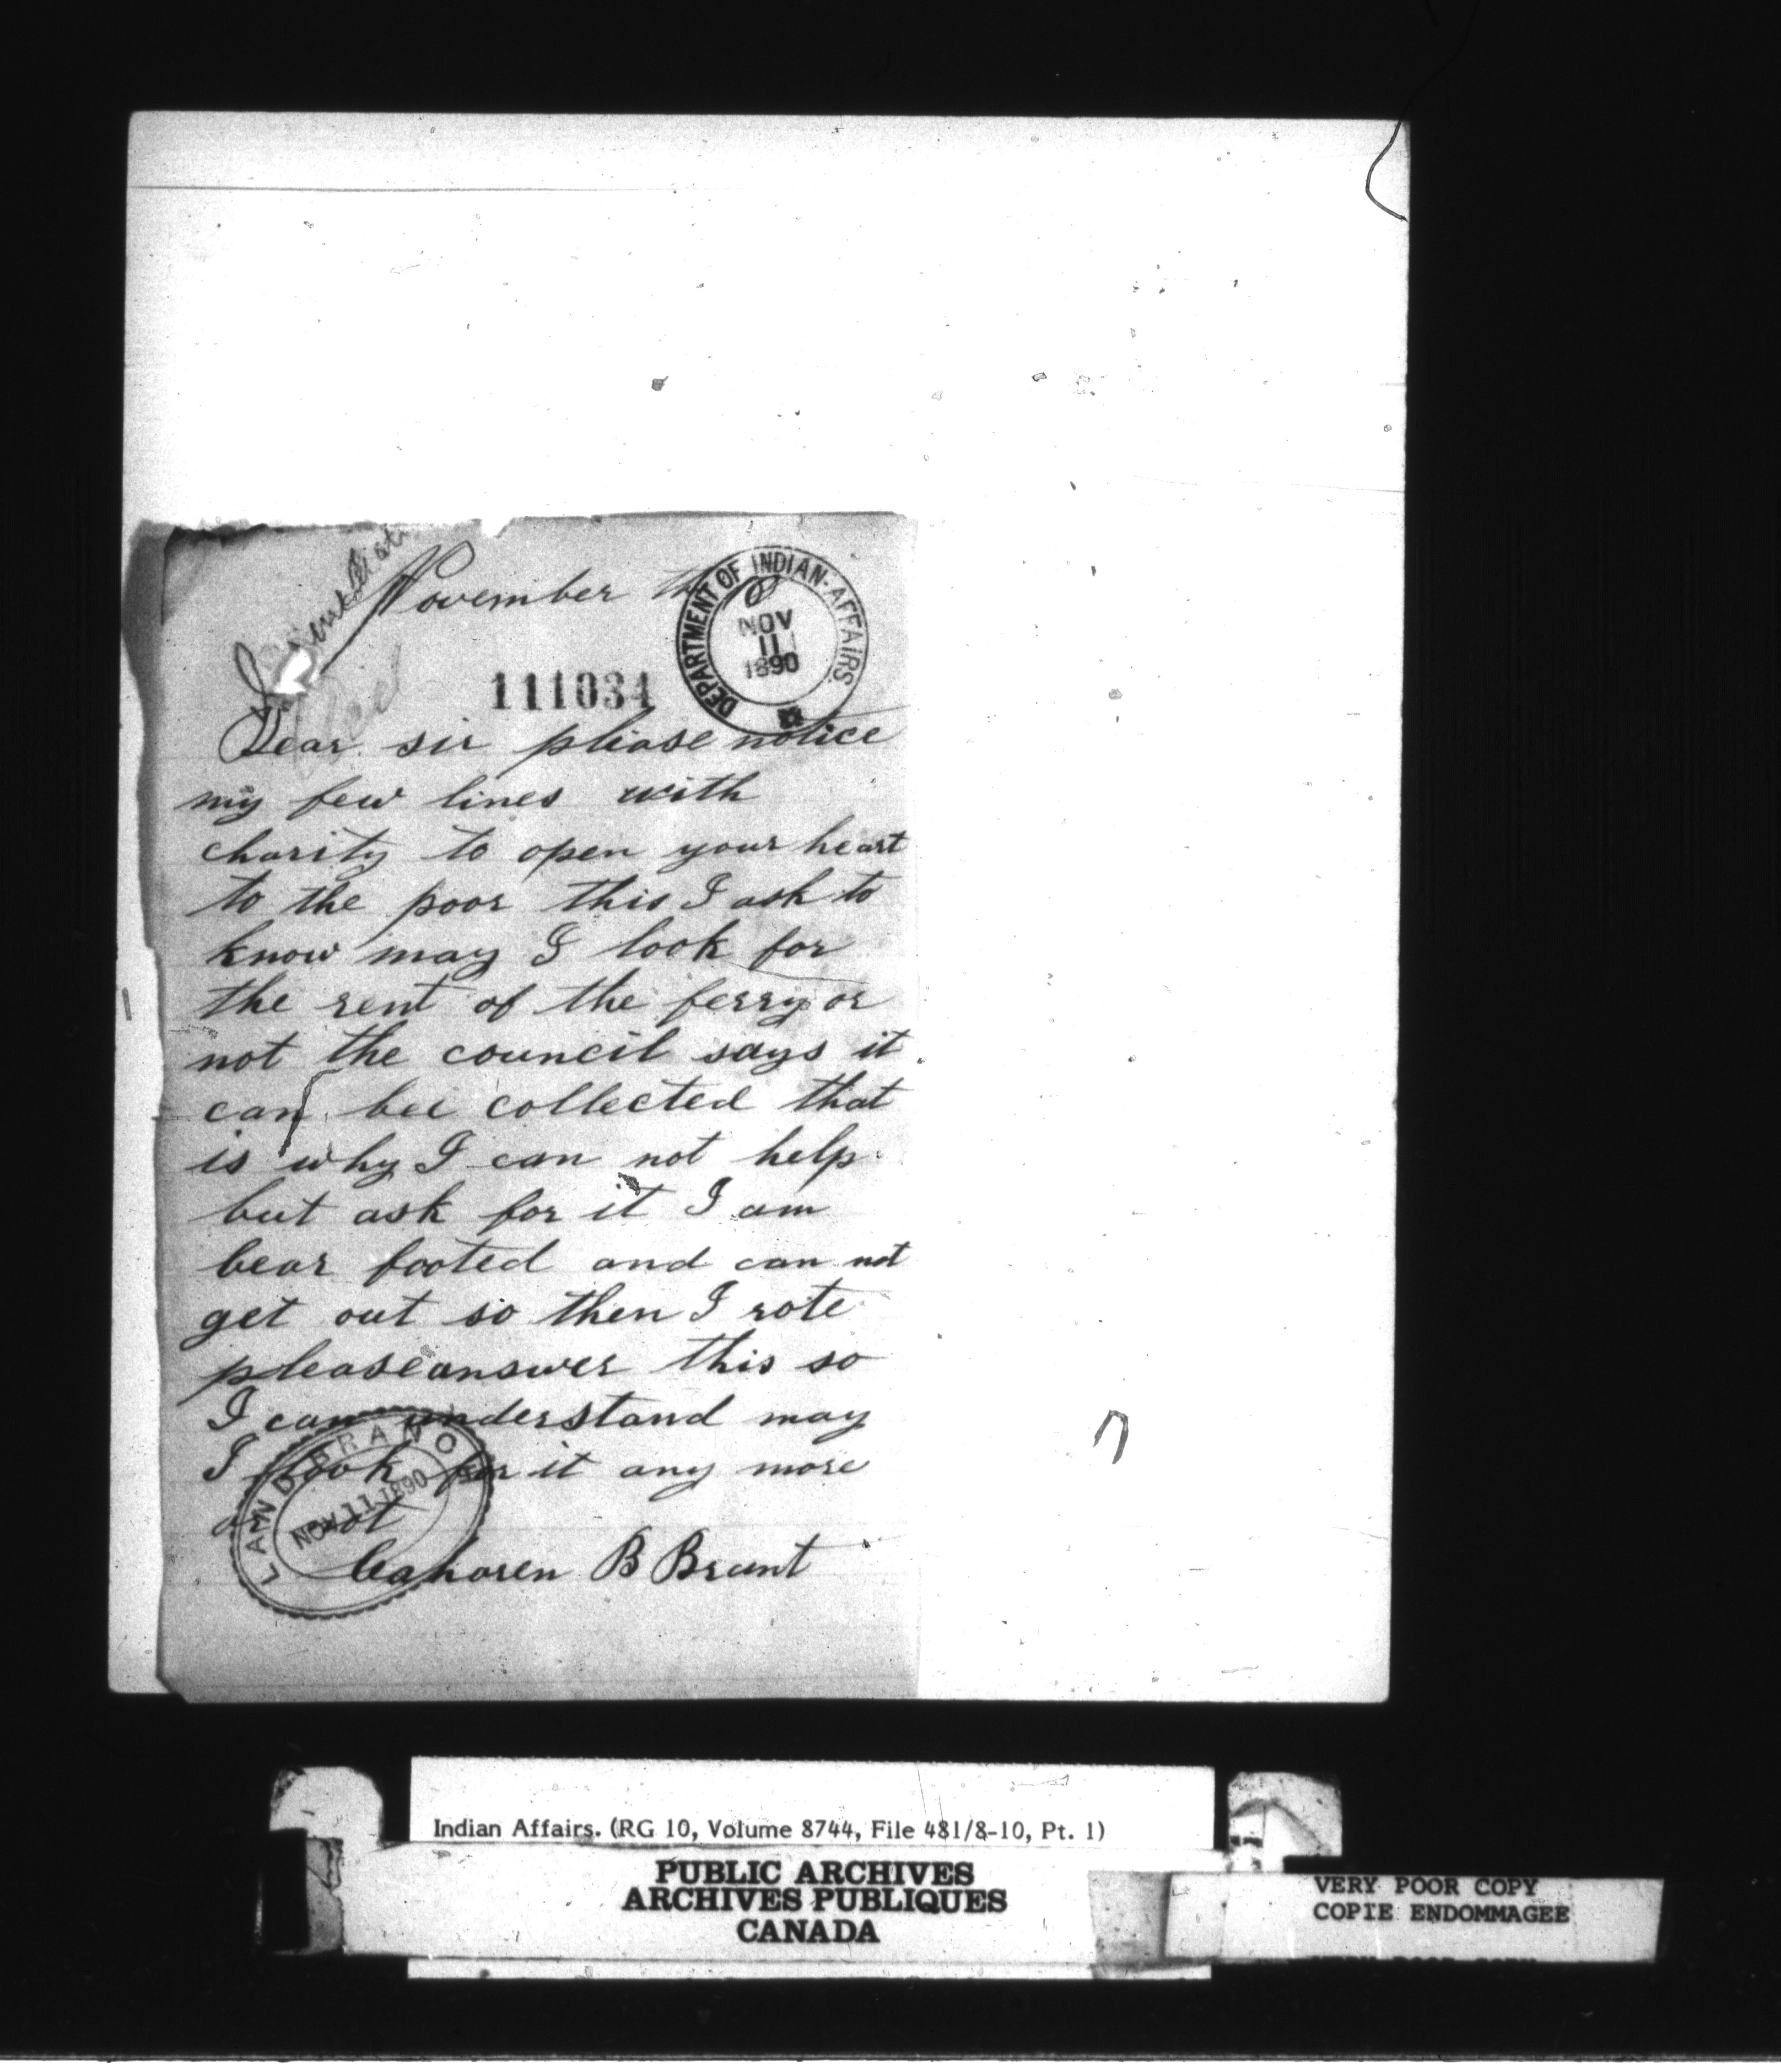 November the 8
DEPARTMENT OF INDIAN-AFFAIRS.
NOV
11
1890
111034
Dear sir please notice
my few lines with
charity to open your heart
to the poor this I ask to
know may I look for
the rent of the ferry or
not the council says it
can bee collected that
is why I can not help
but ask for it I am
bear footed and can not
get out so then I rote
please answer this so
I can understand may
I look for it any more
or not
LAND BRANCH
NOV 11 1890
B Brant
Indian Affairs. (RG 10, Volume 8744, File 481/8-10, Pt. 1)
PUBLIC ARCHIVES
ARCHIVES PUBLIQUES
CANADA
VERY POOR COPY
COPIE ENDOMMAGEE